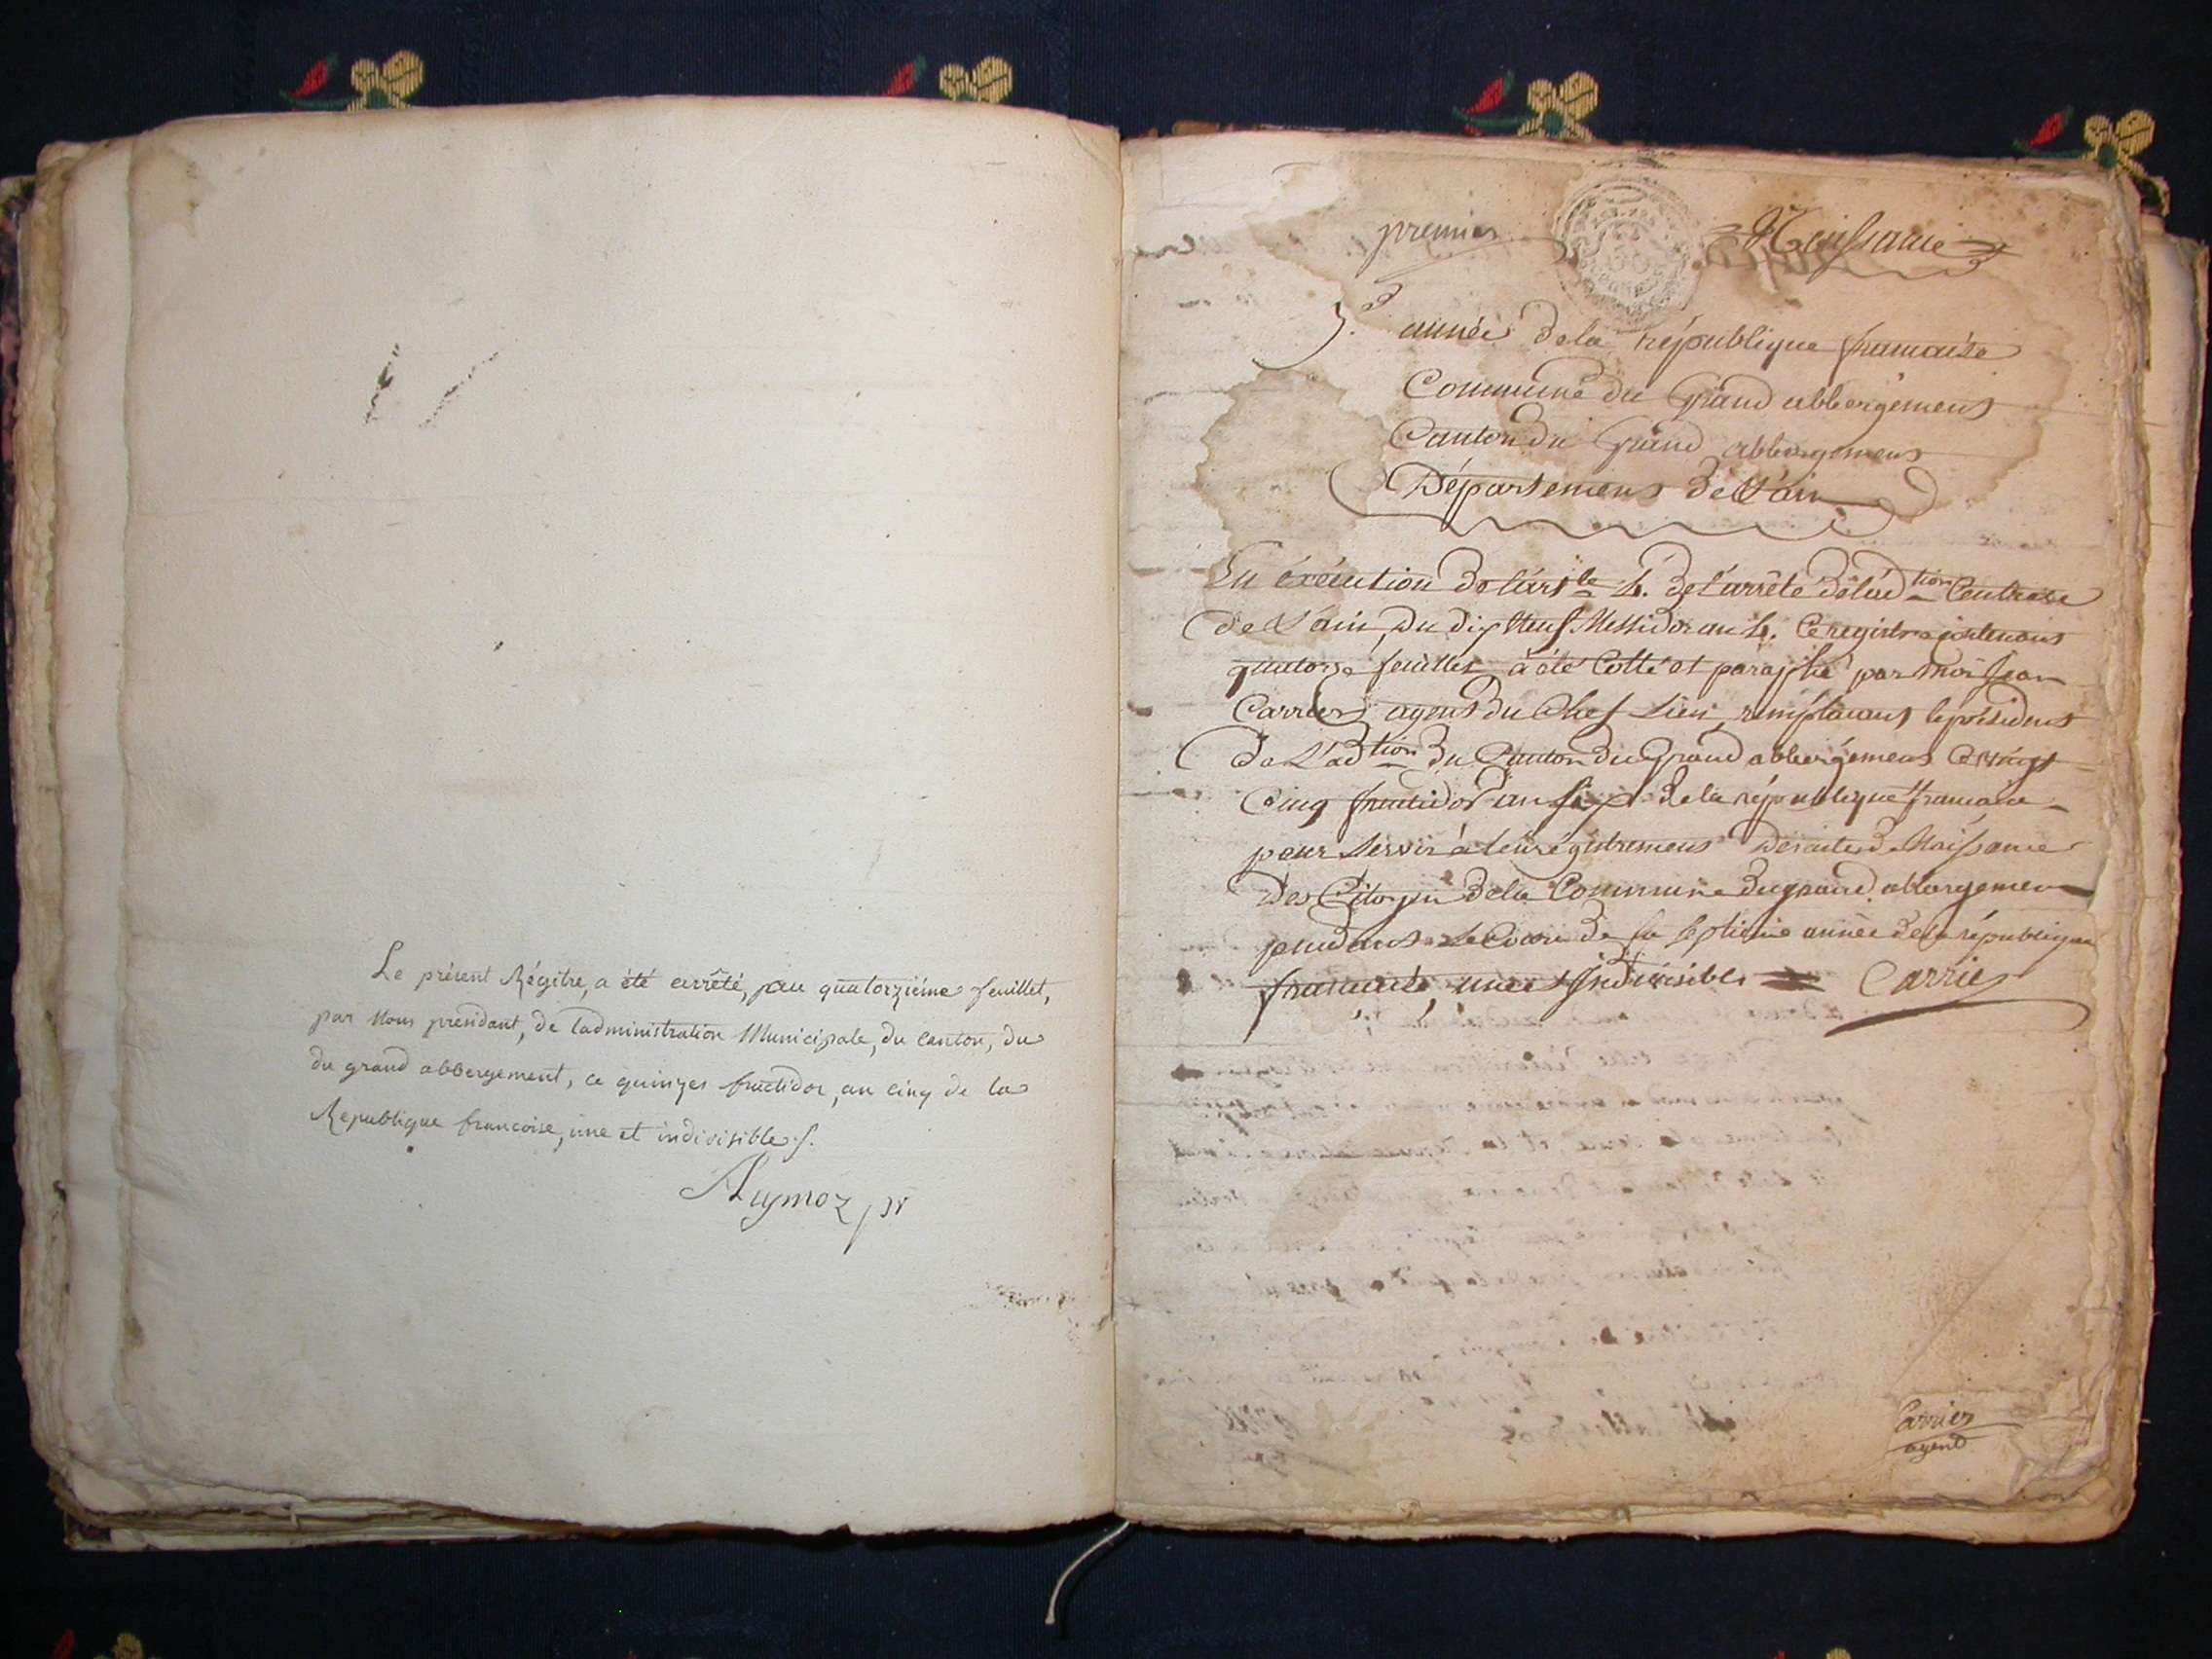 Le présent Régitre, a été arrêté, au quatorziéme feuillet,
par Nous présidant, de l'administration Municipale, du canton, du
du grand abbergement, ce quinzes fructidor, an cinq de la
Republique francoise, une et indivisible /.
Aymoz pt
premier Naissance
7.e année de la république francaise
Commune du Grand abbergement
Canton du Grand abbergement
Département de L'ain
En éxécution de l'art.le 4. de l'arrêté de l'ad.tion Centrale
de L'ain, du dix Neuf Messidor an 4. Ce registre contenant
quatorze feuilles à été Cotté et paraphé par Moi Jean
Carrier agent du Chef Lieu, remplacant le président
De L'ad.tion du Canton du Grand abbergement Ce vingt
Cinq fructidor an six de la république francaise
pour Servir à l'enrégistrement des actes de Naissance
Des Citoyen de la Commune du grand abbergement
pendant Le Cours de la septieme année de la république
francaise, une et Indivisible Carrier
Carrier
agent